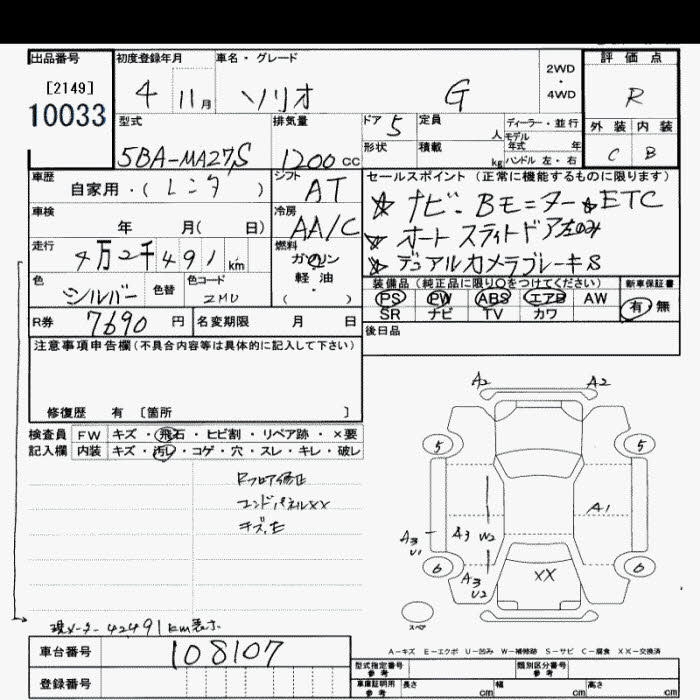 出品番号 初度登録年月 車名・グレード 評価点
[2149] 2WD
・
10033 4 11月 ソリオ G 4WD R
型式 排気量 ドア 5 定員 人 ディーラー・並行 外装 内装
モデル
年式 年
5BA-MA27S 1200cc 形状 積載 kg ハンドル 左・右 C B
車歴 シフト セールスポイント (正常に機能するものに限ります)
自家用・( レンタ ) AT ☆ ナビ・Bモニター ☆ETC
車検 冷房
年 月( 日) AA/C ☆ オートスライドドア左のみ
走行 燃料
4万2千491km ガソリン ☆ デュアルカメラブレーキS
色 色替 色コード 軽・油
シルバー ZMU ( ) 装備品 (純正品に限り○をつけてください) 新車保証書
PS PW ABS エアB AW 有・無
R券 7690円 名変期限 月 日 SR ナビ TV カワ
注意事項申告欄(不具合内容等は具体的に記入して下さい) 後日品
修復歴 有 〔箇所 〕
A2 A2
検査員 FW キズ・飛石・ヒビ割・リペア跡・×要
記入欄 内装 キズ・汚レ・コゲ・穴・スレ・キレ・破レ
5 5
Rフロア修正
エンドパネルXX
キズ、E
A1
A3 U1 A3 W2
6 6
A3 U2 XX
スペア
現メーター42491km表示
A-キズ E-エクボ U-凹み W-補修跡 S-サビ C-腐食 XX-交換済
車台番号 108107
型式指定番号 参考 類別区分番号 参考
登録番号 車庫証明用 参考 長さ cm 幅 cm 高さ cm